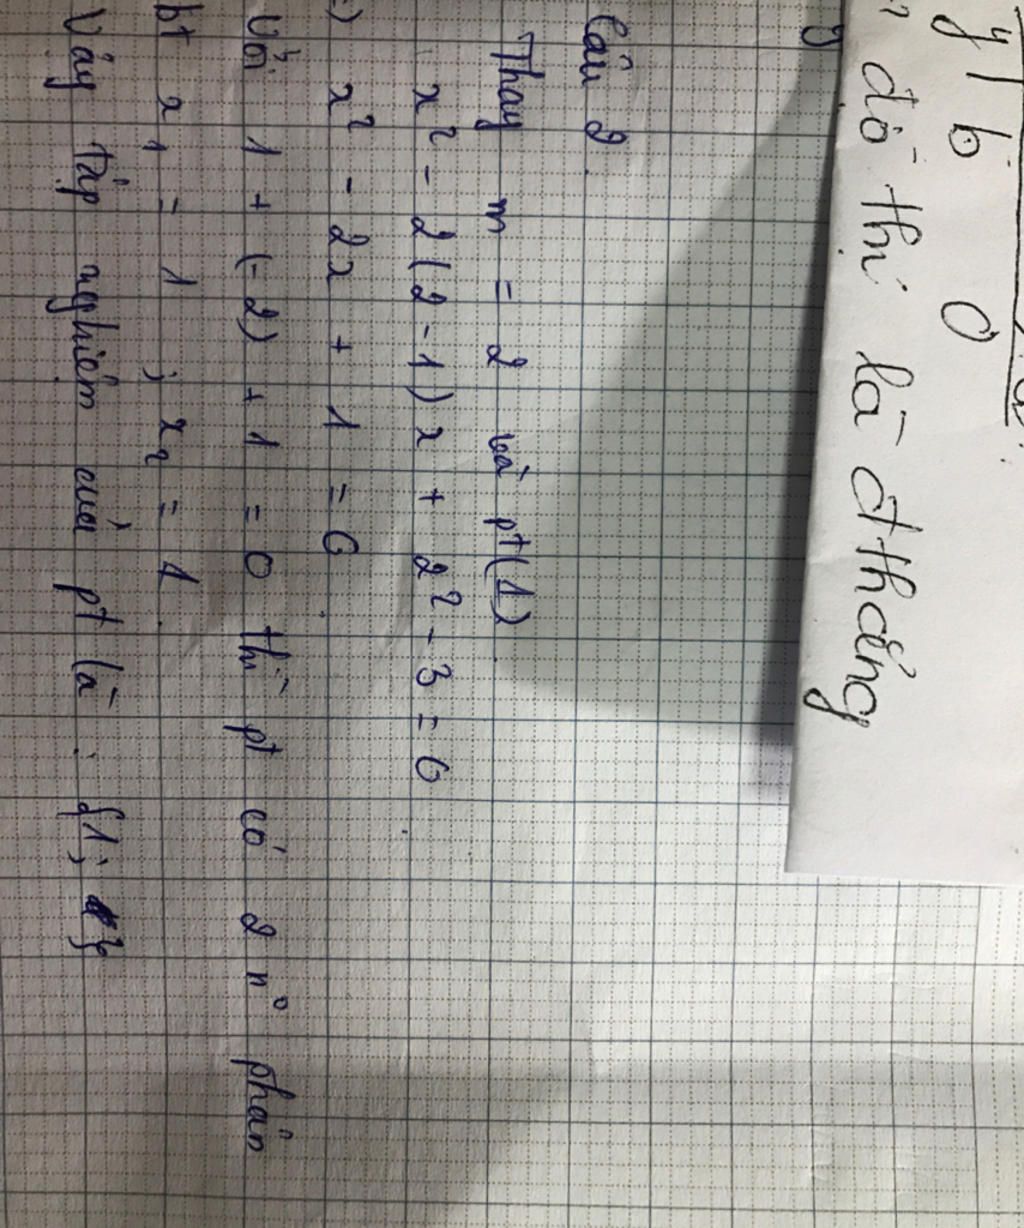 y | b 0
đồ thị là đ thẳng
Câu 2
Thay m = 2 và pt (1)
x² - 2(2-1)x + 2² - 3 = 0
x² - 2x + 1 = 0
Với 1 + (-2) + 1 = 0 thì pt có 2 n⁰ phân
bt x₁ = 1 ; x₂ = 1
Vậy tập nghiệm của pt là : {1; }